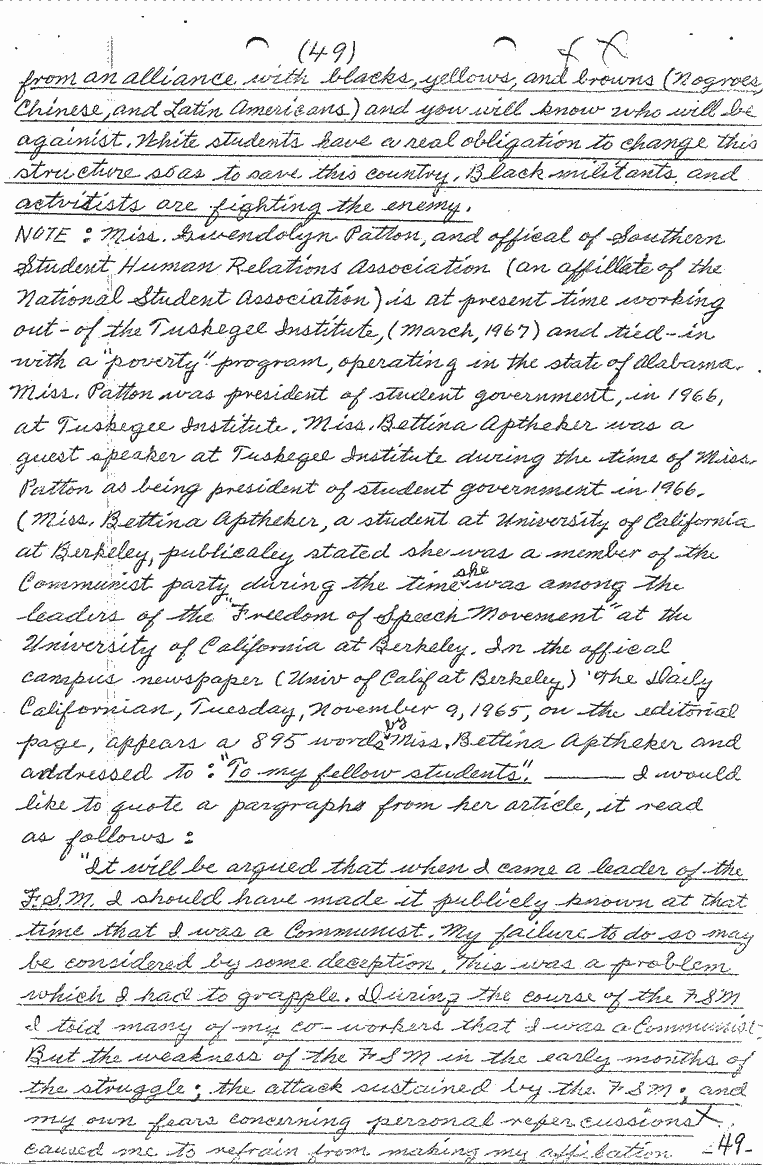 (49)
from an alliance with blacks, yellows, and browns (Nogroes,
Chinese, and Latin Americans) and you will know who will be
againist. White students have a real obligation to change this
structure so as to save this country. Black militants and
actvitists are fighting the enemy.
NOTE : Miss. Gwendolyn Patton, and offical of Southern
Student Human Relations Association (an affillate of the
National Student Association) is at present time working
out-of the Tuskegee Institute, (March, 1967) and tied-in
with a "poverty" program, operating in the state of Alabama.
Miss. Patton was president of student government, in 1966,
at Tuskegee Institute. Miss. Bettina Aptheker was a
guest speaker at Tuskegee Institute during the time of Miss.
Patton as being president of student government in 1966.
(Miss. Bettina Aptheker, a student at University of California
at Berkeley, publicaley stated she was a member of the
Communist party during the time she was among the
leaders of the "Freedom of Speech Movement" at the
University of California at Berkeley. In the offical
campus newspaper (Univ of Calif at Berkeley) "The Daily
Californian, Tuesday, November 9, 1965, on the editorial
page, appears a 895 words by Miss. Bettina Aptheker and
addressed to : "To my fellow students". ——— I would
like to quote a pargraphs from her article, it read
as follows :
"It will be argued that when I came a leader of the
F.S.M. I should have made it publicly known at that
time that I was a Communist. My failure to do so may
be considered by some deception. This was a problem
which I had to grapple. During the course of the FSM
I told many of my co-workers that I was a Communist.
But the weakness of the FSM in the early months of
the struggle; the attack sustained by the FSM; and
my own fears concerning personal repercussions
caused me to refrain from making my affilation
-49-